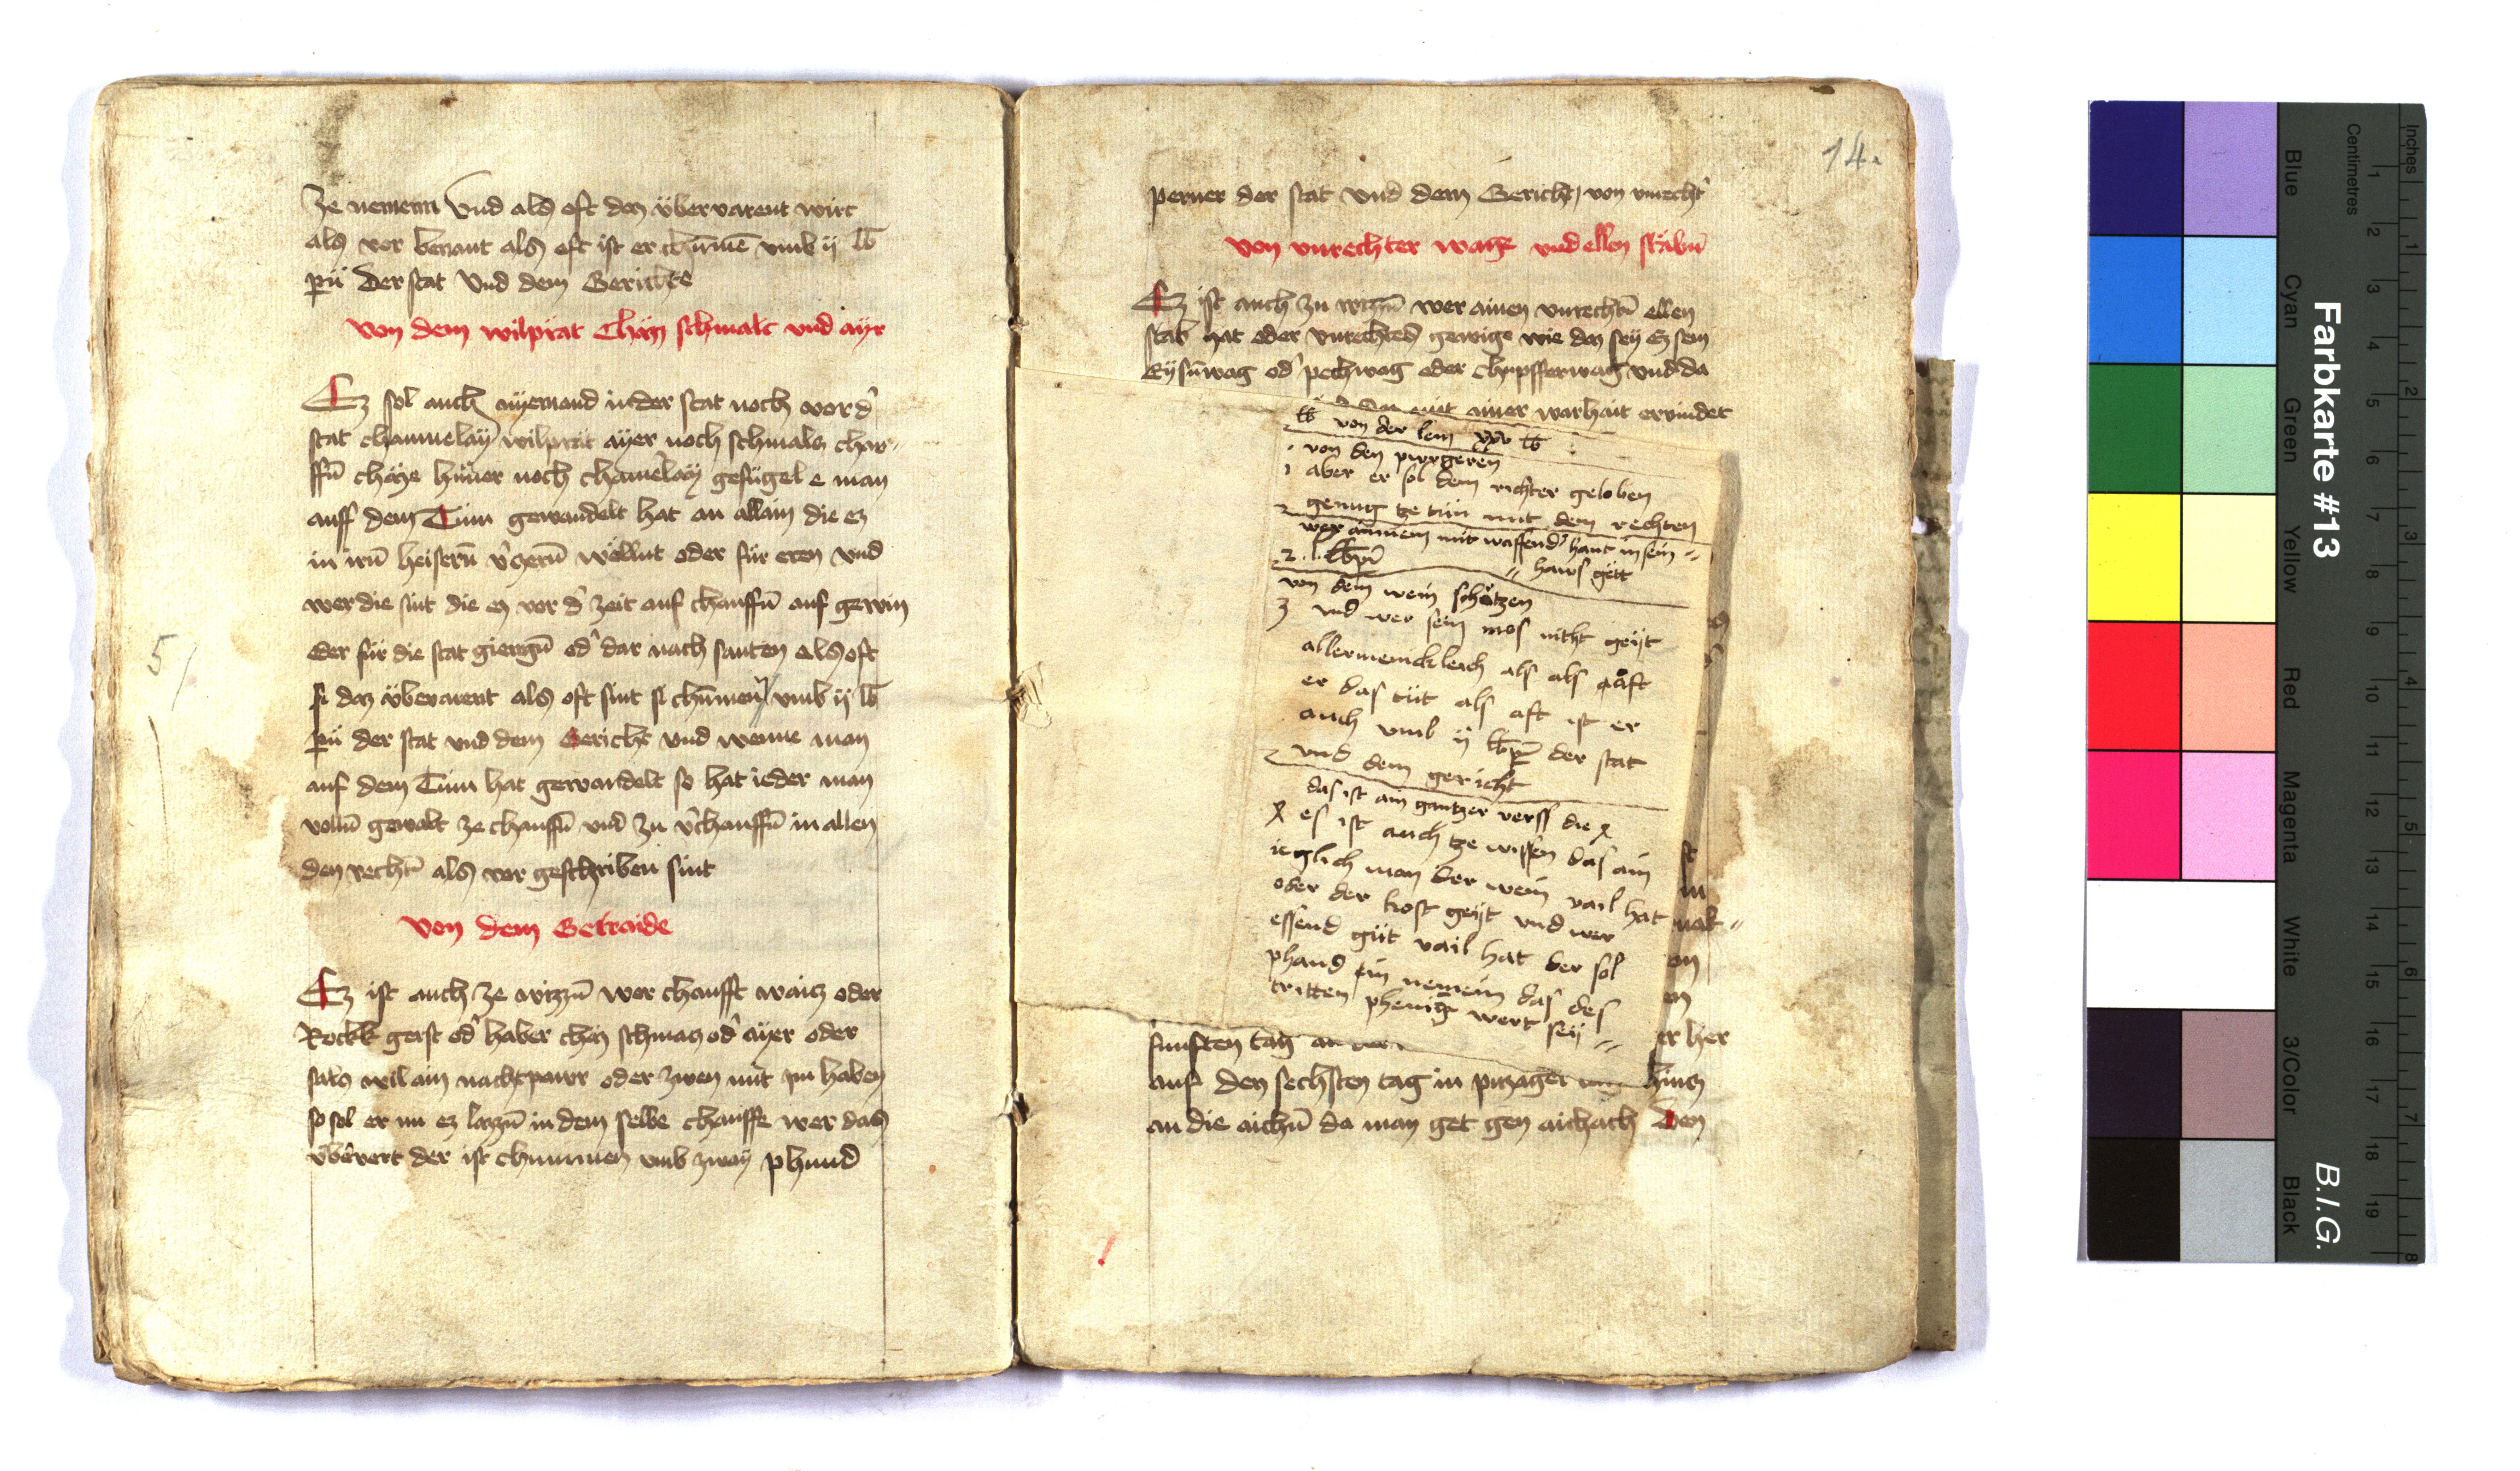 ze nemenn Vnd als oft daz übervarent wirt
als vor benant als oft ist er chūmē vmb ij lb
pn̄ Der stat Vnd dem Gerichte
Von dem wilprät Chäs schmalt vnd ayr
Ez sol auch nyemand in der stat noch vor d'
stat chainnelaÿ wilprät ayer noch schmalcz chaw-
ffn̄ chäse hüner noch chainerlaÿ gefügel e man
auff dem Turn gewandelt hat an allain die ez
in irn̄ heisern v'czern̄ wöllnt oder für eren vnd
wer die sint die ez vor d' zeit auf chauffn̄ auf gewin
oder für die stat giengn̄ od' dar nach santen als oft
si daz überuerent als oft sint si chūmen vmb ij lb
pn̄ der stat vnd dem Gericht vnd wenne man
auf dem Turn hat gewandelt so hat ieder man
volln̄ gewalt ze chauffn̄ vnd zu v'chauffn̄ in allen
den rechtn̄ als vor geschriben sint
Von dem Getraide
Ez ist auch ze wizzn̄ wer chaufft waicz oder
Rockk gerst od' haber chäs schmalcz od' ayer oder
salcz wil ain nachtpawr oder zwen mit im haben
so sol er im ez lazzn̄ in dem selbe chauffe wer das
vb'vert der ist chummen vmb zway phund
5/
14.
perner der stat vnd dem Gericht von vnrecht'
Von vnrechter wage vnd ellen stäbn̄
Ez ist auch zu wizzn̄ wer ainen vnrechtn̄ ellen
stab hat oder vnrechtes gewige wie daz seÿ ez sein
Eysn̄wag od' pechwag oder chupfferwag vnd da
mit ainer warhait ervindet
lb von der lem xxv lb
von den purgeren
aber er sol dem richter geloben
genug tze tün mit dem rechten
wer ainnem mit waffend' hant in sein
haws gett
lb pn̄
von dem wein schätzen
3 vnd wer sein mos nitht geÿt
allermenickleich als als aft
er das tüt als aft ist er
auch vmb ij lb pn̄ der stat
vnd dem gericht
das ist ain gantzer verss die x
x es ist auch tze wissen das ain
ieglich man der wein vail hat
oder der kost geÿt vnd wer
essend güt vail hat der sol
phand ein nemein das des
tritten phenig wert seÿ
er her
funften tag
auf den sechsten tag in hincz
an die aichn̄ da man get gen aichach Den
Farbkarte #13
B.I.G.
Inches 1 2 3 4 5 6 7 8
Centimetres 1 2 3 4 5 6 7 8 9 10 11 12 13 14 15 16 17 18 19
Blue
Cyan
Green
Yellow
Red
Magenta
White
3/Color
Black